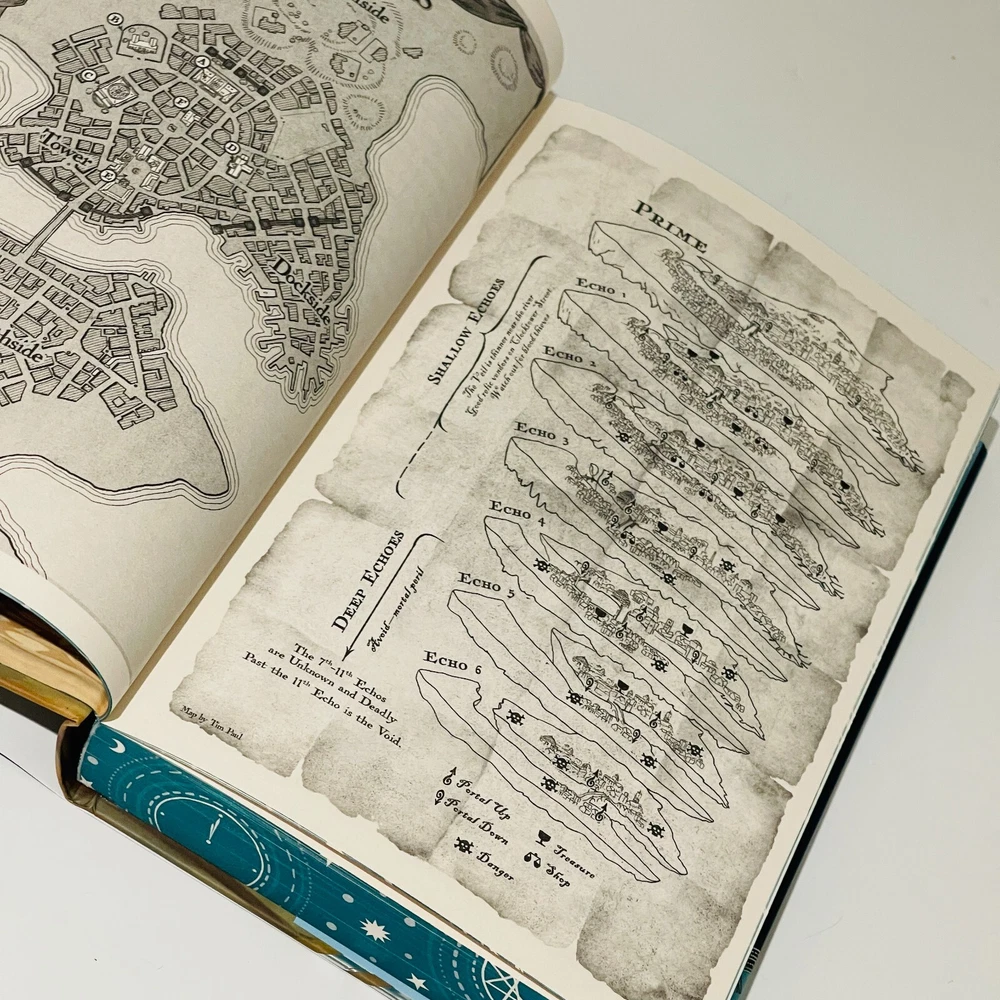 Tower
Dockside
B
A
C
F
D
E
Prime
Echo 1
Echo 2
Echo 3
Echo 4
Echo 5
Echo 6
Shallow Echoes
The Veil is thinner near the river
Good relic vendors on Clocktower Street
Watch out for blood thieves
Deep Echoes
Avoid—mortal peril
The 7th-11th Echos
are Unknown and Deadly
Past the 11th Echo is the Void.
Map by Tim Paul
Portal Up
Portal Down
Danger
Treasure
Shop